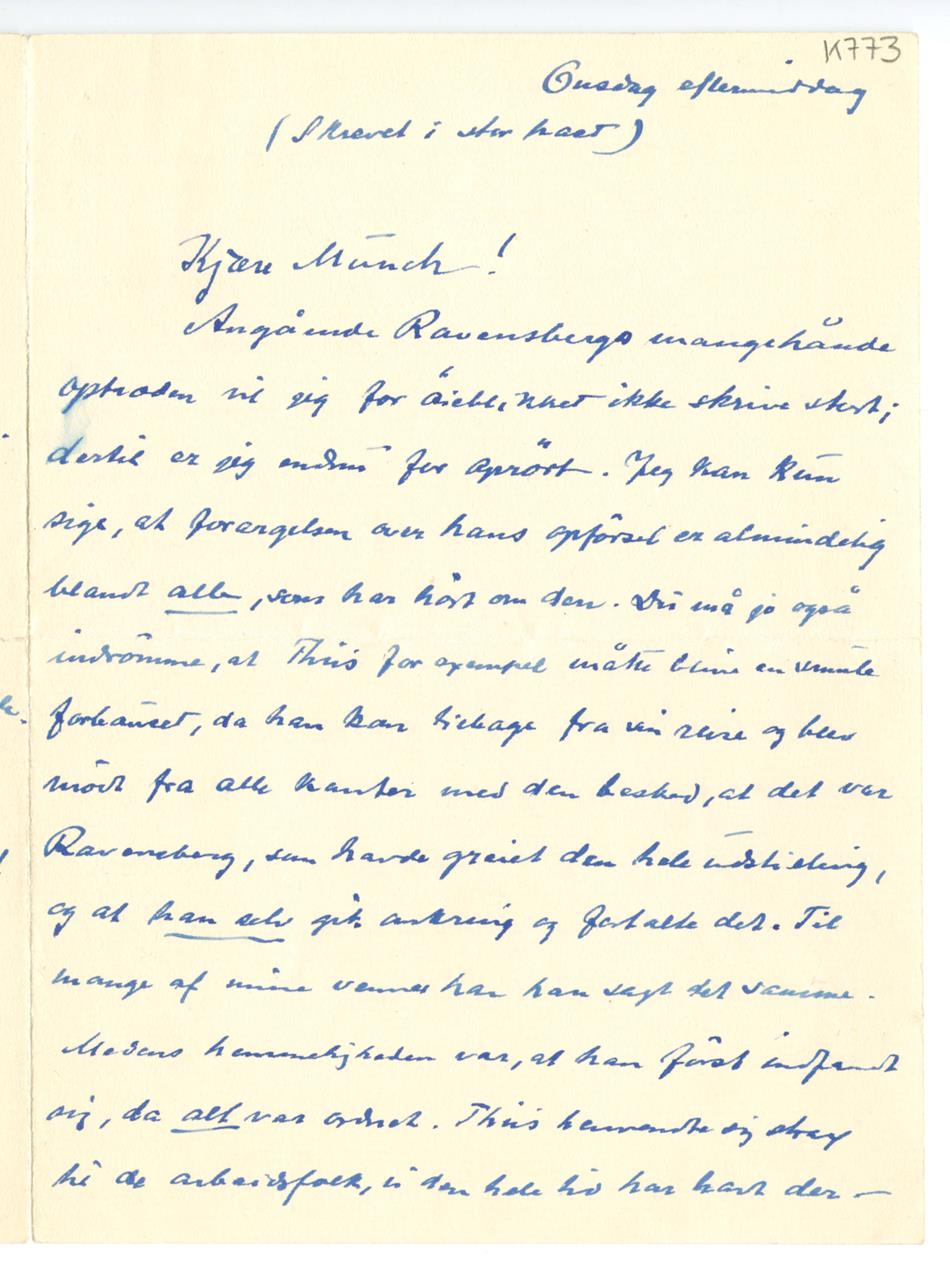 K773
Onsdag eftermiddag
(Skrevet i stor hast)
Kjære Munch!
Angående Ravensbergs mangehånde
optræden vil jeg for öieblikket ikke skrive stort;
dertil er jeg endnu for oprört. Jeg kan kun
sige, at forargelsen over hans opförsel er almindelig
blandt alle, som har hört om den. Du må jo også
indrömme, at Thiis for exempel måtte blive en smule
forbauset, da han kom tilbage fra sin reise og blev
mödt fra alle kanter med den besked, at det var
Ravensberg, som havde greiet den hele udstilling,
og at han selv gik omkring og fortalte det. Til
mange af mine venner har han sagt det samme.
Medens hemmeligheden var, at han först indfandt
sig, da alt var ordnet. Thiis henvendte sig strax
til de arbeidsfolk, vi den hele tid har havt der-